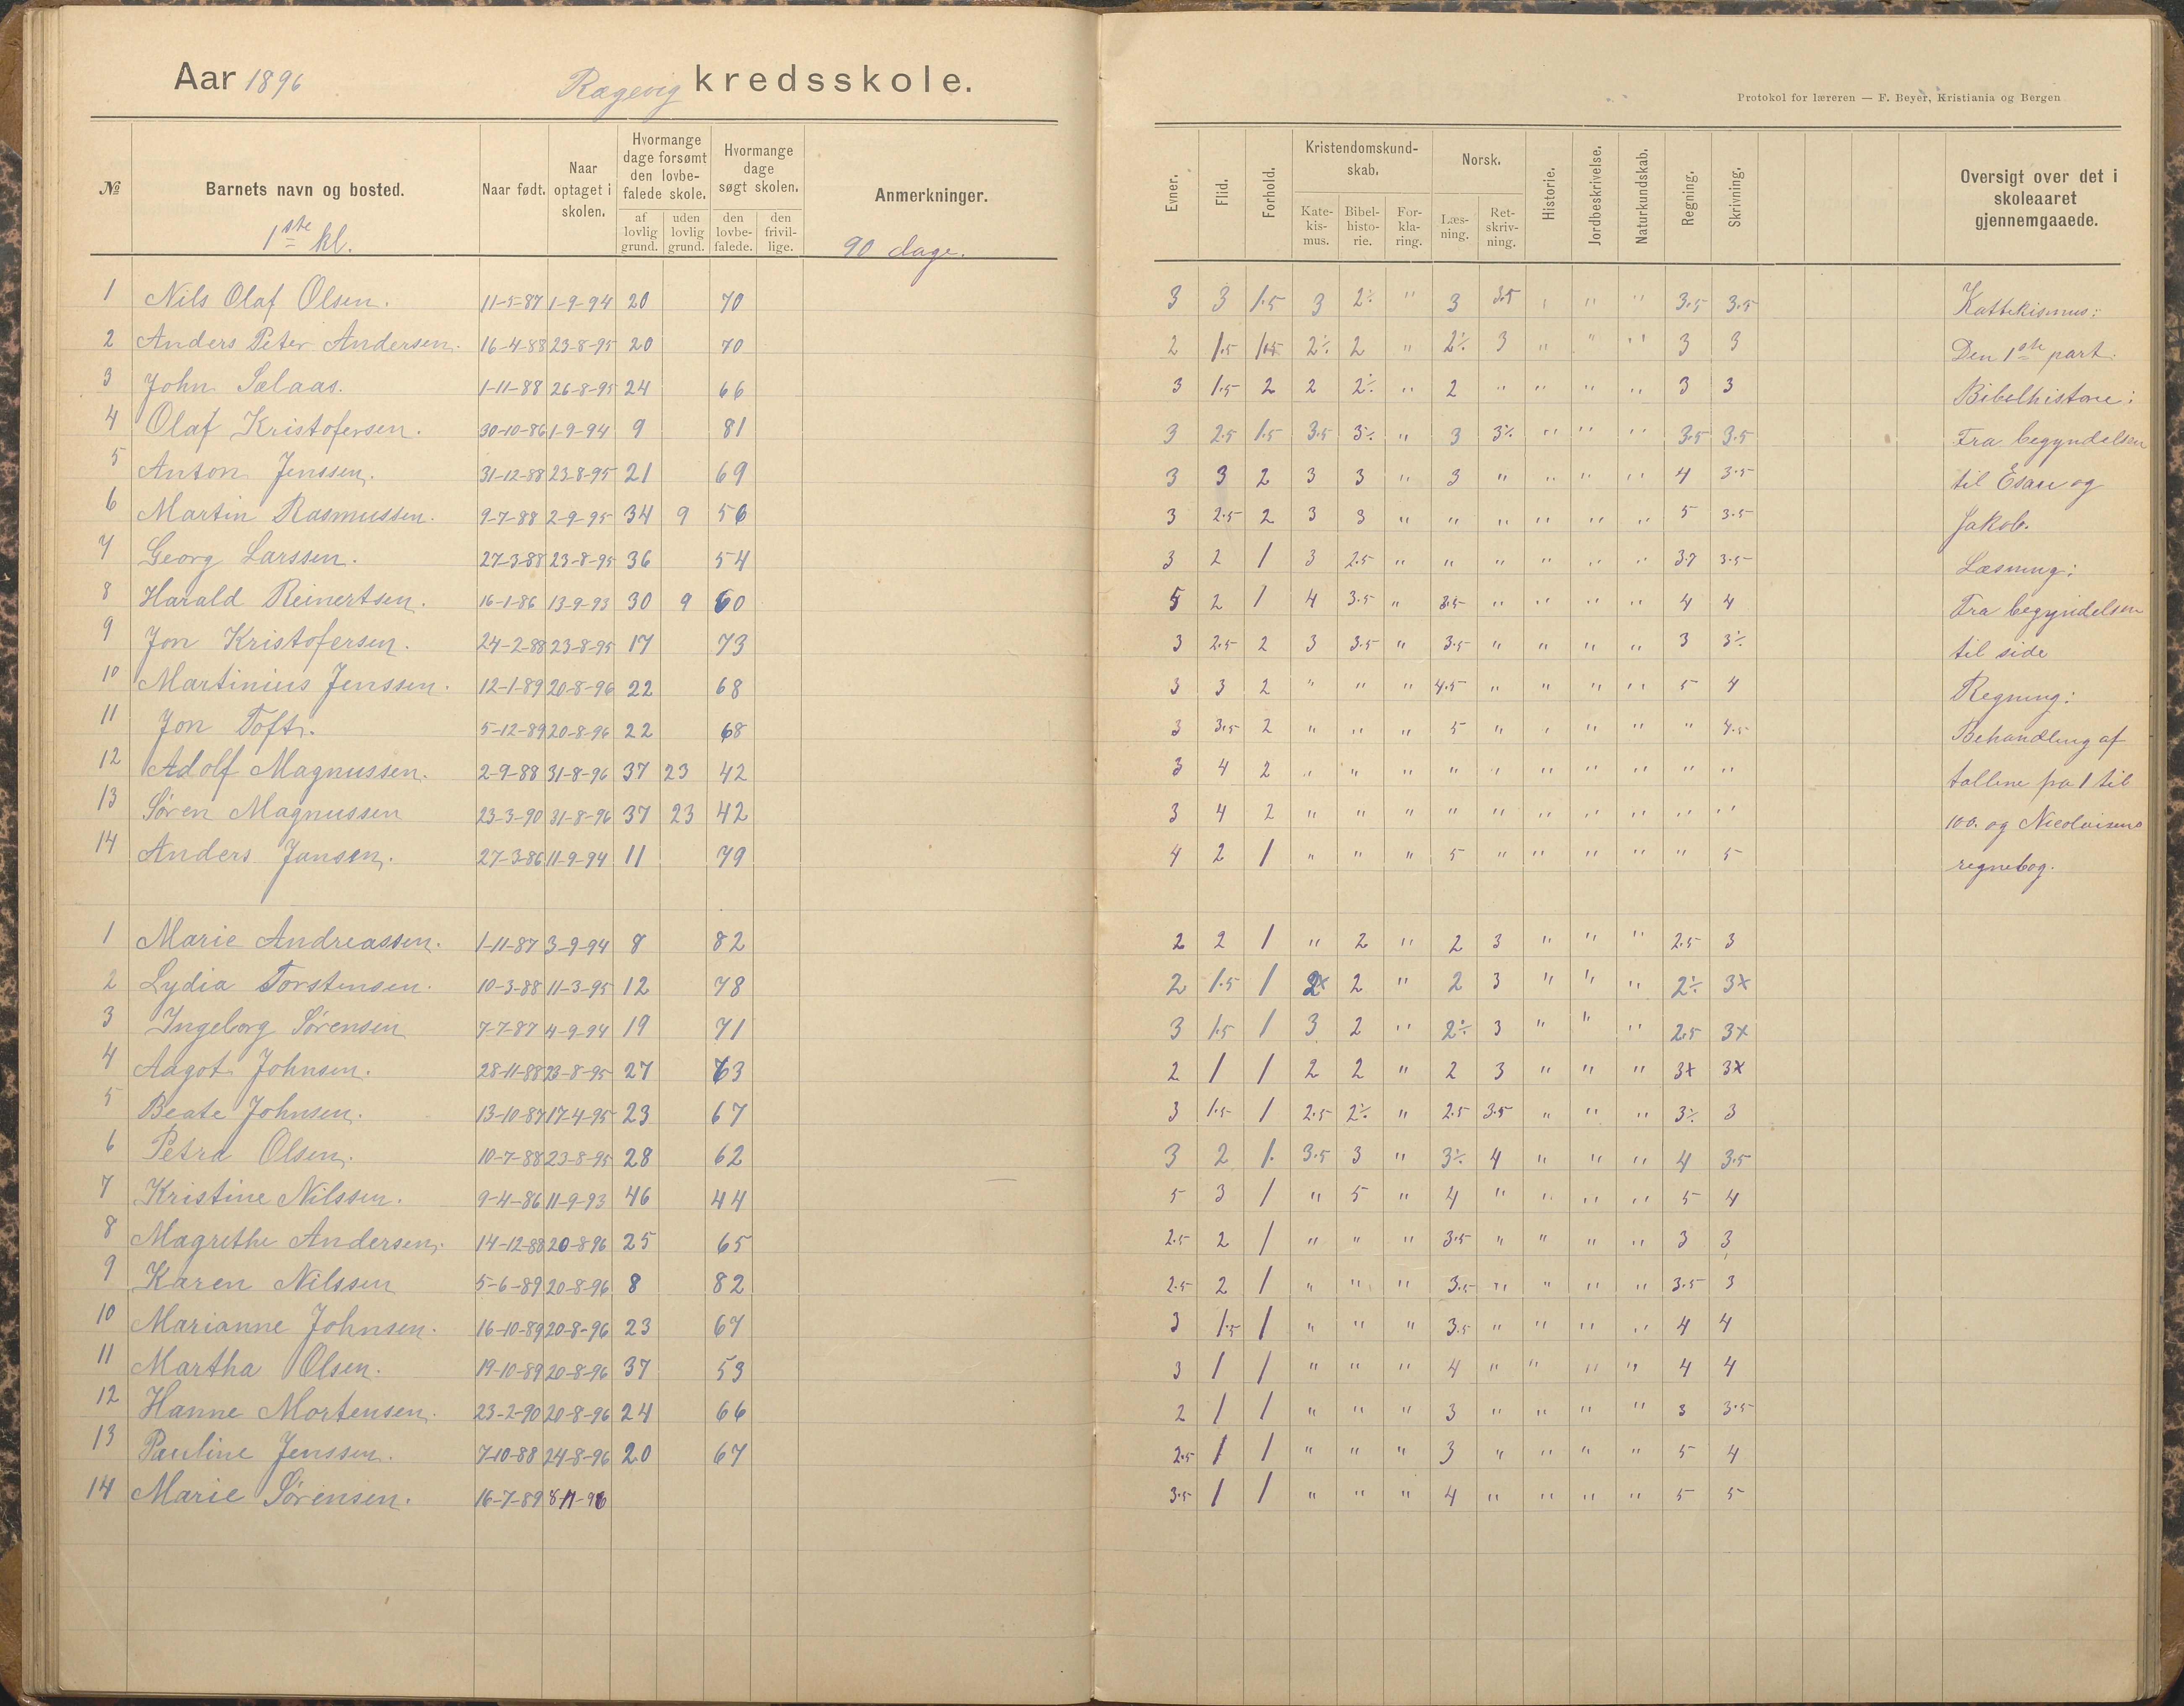 Aar 1896 Ragevig kredsskole.
Protokol for læreren — F. Beyer, Kristiania og Bergen
№ Barnets navn og bosted. Naar født. Naar optaget i skolen. Hvormange dage forsømt den lovbefalede skole. af lovlig grund. uden lovlig grund. Hvormange dage søgt skolen. den lovbefalede. den frivillige. Anmerkninger.
1ste kl. 90 dage.
1 Nils Olaf Olsen. 11-5-87 1-9-94 20 70
2 Anders Peter Andersen. 16-4-88 23-8-95 20 70
3 John Sælaas. 1-11-88 26-8-95 24 66
4 Olaf Kristofersen. 30-10-86 1-9-94 9 81
5 Anton Jenssen. 31-12-88 23-8-95 21 69
6 Martin Rasmussen. 9-7-88 2-9-95 34 9 56
7 Georg Larssen. 27-3-88 23-8-95 36 54
8 Harald Reinertsen. 16-1-86 13-9-93 30 9 60
9 Jon Kristofersen. 24-2-88 23-8-95 17 73
10 Martinius Jenssen. 12-1-89 20-8-96 22 68
11 Jon Toft. 5-12-89 20-8-96 22 68
12 Adolf Magnussen. 2-9-88 31-8-96 37 23 42
13 Søren Magnussen 23-3-90 31-8-96 37 23 42
14 Anders Jansen. 27-3-86 11-9-94 11 79
1 Marie Andreassen. 1-11-87 3-9-94 8 82
2 Lydia Torstensen. 10-3-88 11-3-95 12 78
3 Ingeborg Sørensen 7-7-87 4-9-94 19 71
4 Aagot Johnsen. 28-11-88 23-8-95 27 63
5 Beate Johnsen. 13-10-87 17-4-95 23 67
6 Petra Olsen. 10-7-88 23-8-95 28 62
7 Kristine Nilssen. 9-4-86 11-9-93 46 44
8 Magrethe Andersen. 14-12-88 20-8-96 25 65
9 Karen Nilssen 5-6-89 20-8-96 8 82
10 Marianne Johnsen. 16-10-89 20-8-96 23 67
11 Martha Olsen. 19-10-89 20-8-96 37 53
12 Hanne Mortensen. 23-2-90 20-8-96 24 66
13 Pauline Jenssen. 7-10-88 24-8-96 20 67
14 Marie Sørensen. 16-7-89 8-11-96
Evner. Flid. Forhold. Kristendomskundskab. Katekismus. Bibelhistorie. Forklaring. Norsk. Læsning. Retskrivning. Historie. Jordbeskrivelse. Naturkundskab. Regning. Skrivning. Oversigt over det i skoleaaret gjennemgaaede.
3 3 1.5 3 2÷ " 3 3.5 " " " 3.5 3.5 Kattekismus:
2 1.5 1.5 2÷ 2 " 2÷ 3 " " " 3 3 Den 1ste part.
3 1.5 2 2 2÷ " 2 " " " " 3 3 Bibelhistorie:
3 2.5 1.5 3.5 3÷ " 3 3÷ " " " 3.5 3.5 Fra begyndelsen
3 3 2 3 3 " 3 " " " " 4 3.5 til Esau og
3 2.5 2 3 3 " " " " " " 5 3.5 Jakob.
3 2 1 3 2.5 " " " " " " 3.7 3.5 Læsning:
5 2 1 4 3.5 " 3.5 " " " " 4 4 Fra begyndelsen
3 2.5 2 3 3.5 " 3.5 " " " " 3 3÷ til side
3 3 2 " " " 4.5 " " " " 5 4 Regning:
3 3.5 2 " " " 5 " " " " " 4.5 Behandling af
3 4 2 " " " " " " " " " " tallene fra 1 til
3 4 2 " " " " " " " " " " 100. og Nicolaisens
4 2 1 " " " 5 " " " " " 5 regnebog.
2 2 1 " 2 " 2 3 " " " 2.5 3
2 1.5 1 2× 2 " 2 3 " " " 2÷ 3×
3 1.5 1 3 2 " 2÷ 3 " " " 2.5 3×
2 1 1 2 2 " 2 3 " " " 3× 3×
3 1.5 1 2.5 2÷ " 2.5 3.5 " " " 3÷ 3
3 2 1. 3.5 3 " 3÷ 4 " " " 4 3.5
5 3 1 " 5 " 4 " " " " 5 4
2.5 2 1 " " " 3.5 " " " " 3 3
2.5 2 1 " " " 3.5 " " " " 3.5 3
3 1.5 1 " " " 3.5 " " " " 4 4
3 1 1 " " " 4 " " " " 4 4
2 1 1 " " " 3 " " " " 3 3.5
2.5 1 1 " " " 3 " " " " 5 4
3.5 1 1 " " " 4 " " " " 5 5